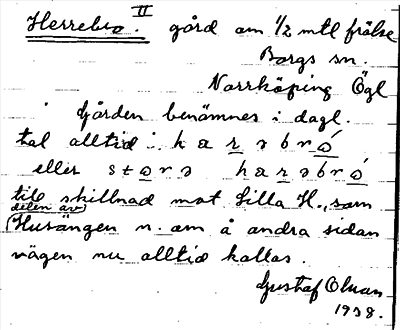 Herrebro. II gård om 1/2 mtl frälse
Borgs sn.
Norrköping Ögl
Gården benämnes i dagl.
tal alltid: hærəbró
eller storə hærəbró
till skillnad mot Lilla H., som
delen av
(Husängen n. om å andra sidan
vägen nu alltid kallas.
Gustaf Olman
1938.